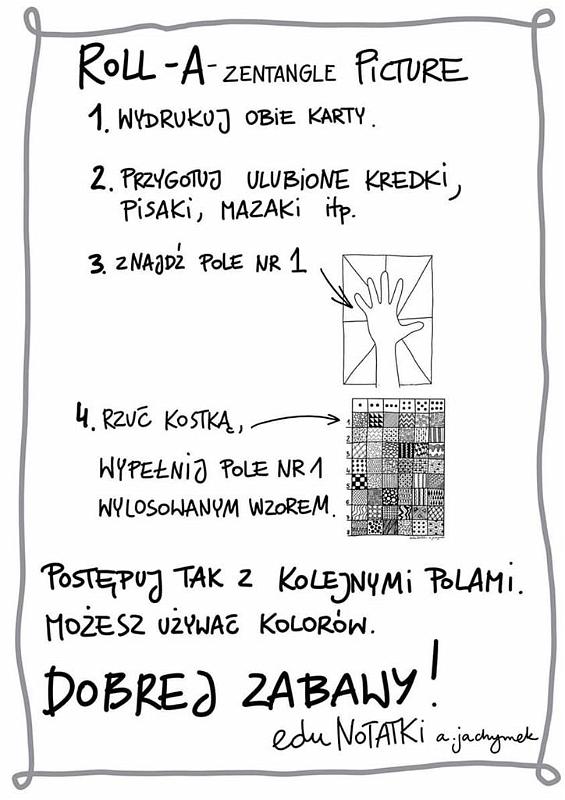 ROLL-A-ZENTANGLE PICTURE
1. WYDRUKUJ OBIE KARTY.
2. PRZYGOTUJ ULUBIONE KREDKI,
PISAKI, MAZAKI itp.
3. ZNAJDŹ POLE NR 1
4. RZUĆ KOSTKĄ,
WYPEŁNIJ POLE NR 1
WYLOSOWANYM WZOREM.
POSTĘPUJ TAK Z KOLEJNYMI POLAMI.
MOŻESZ UŻYWAĆ KOLORÓW.
DOBREJ ZABAWY!
edu NOTATKI a.jachymek